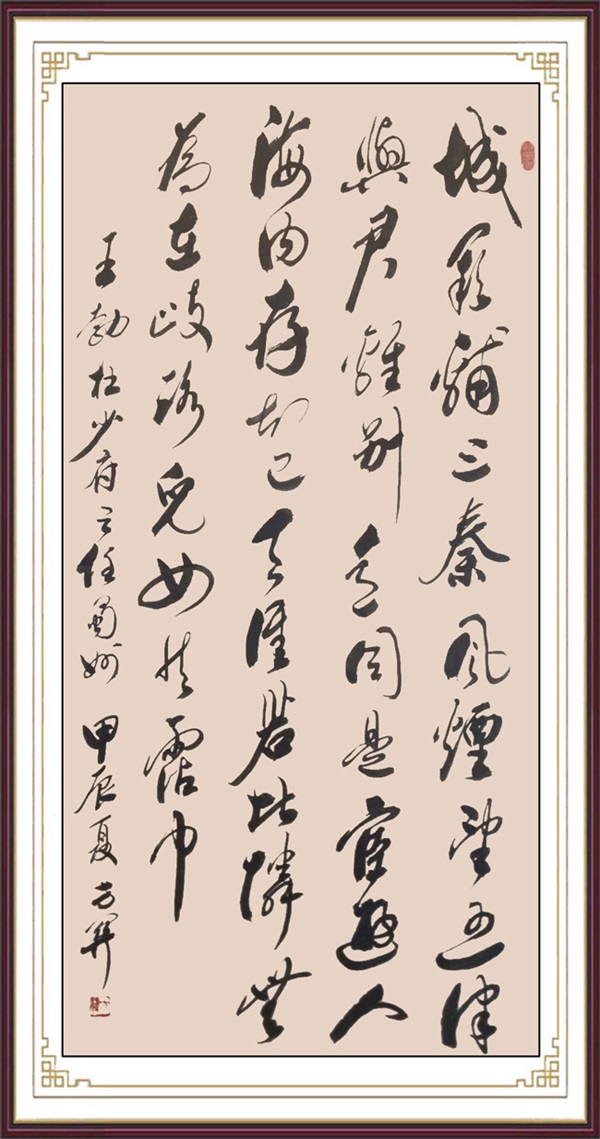 城闕輔三秦風煙望五津
與君離別意同是宦遊人
海内存知己天涯若比隣無
為在歧路兒女共霑巾
王勃杜少府之任蜀州 甲辰夏